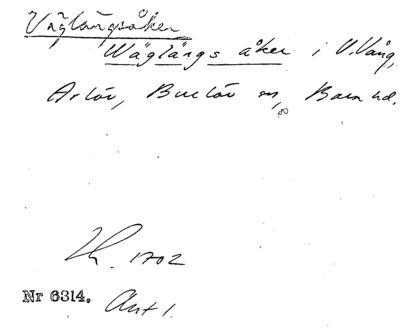 Väglångsåker
Wäglångs åker i V. Vång,
Arlöv, Burlöv sn, Bara hd.
Lh. 1702
Nr 6314. Akt 1.